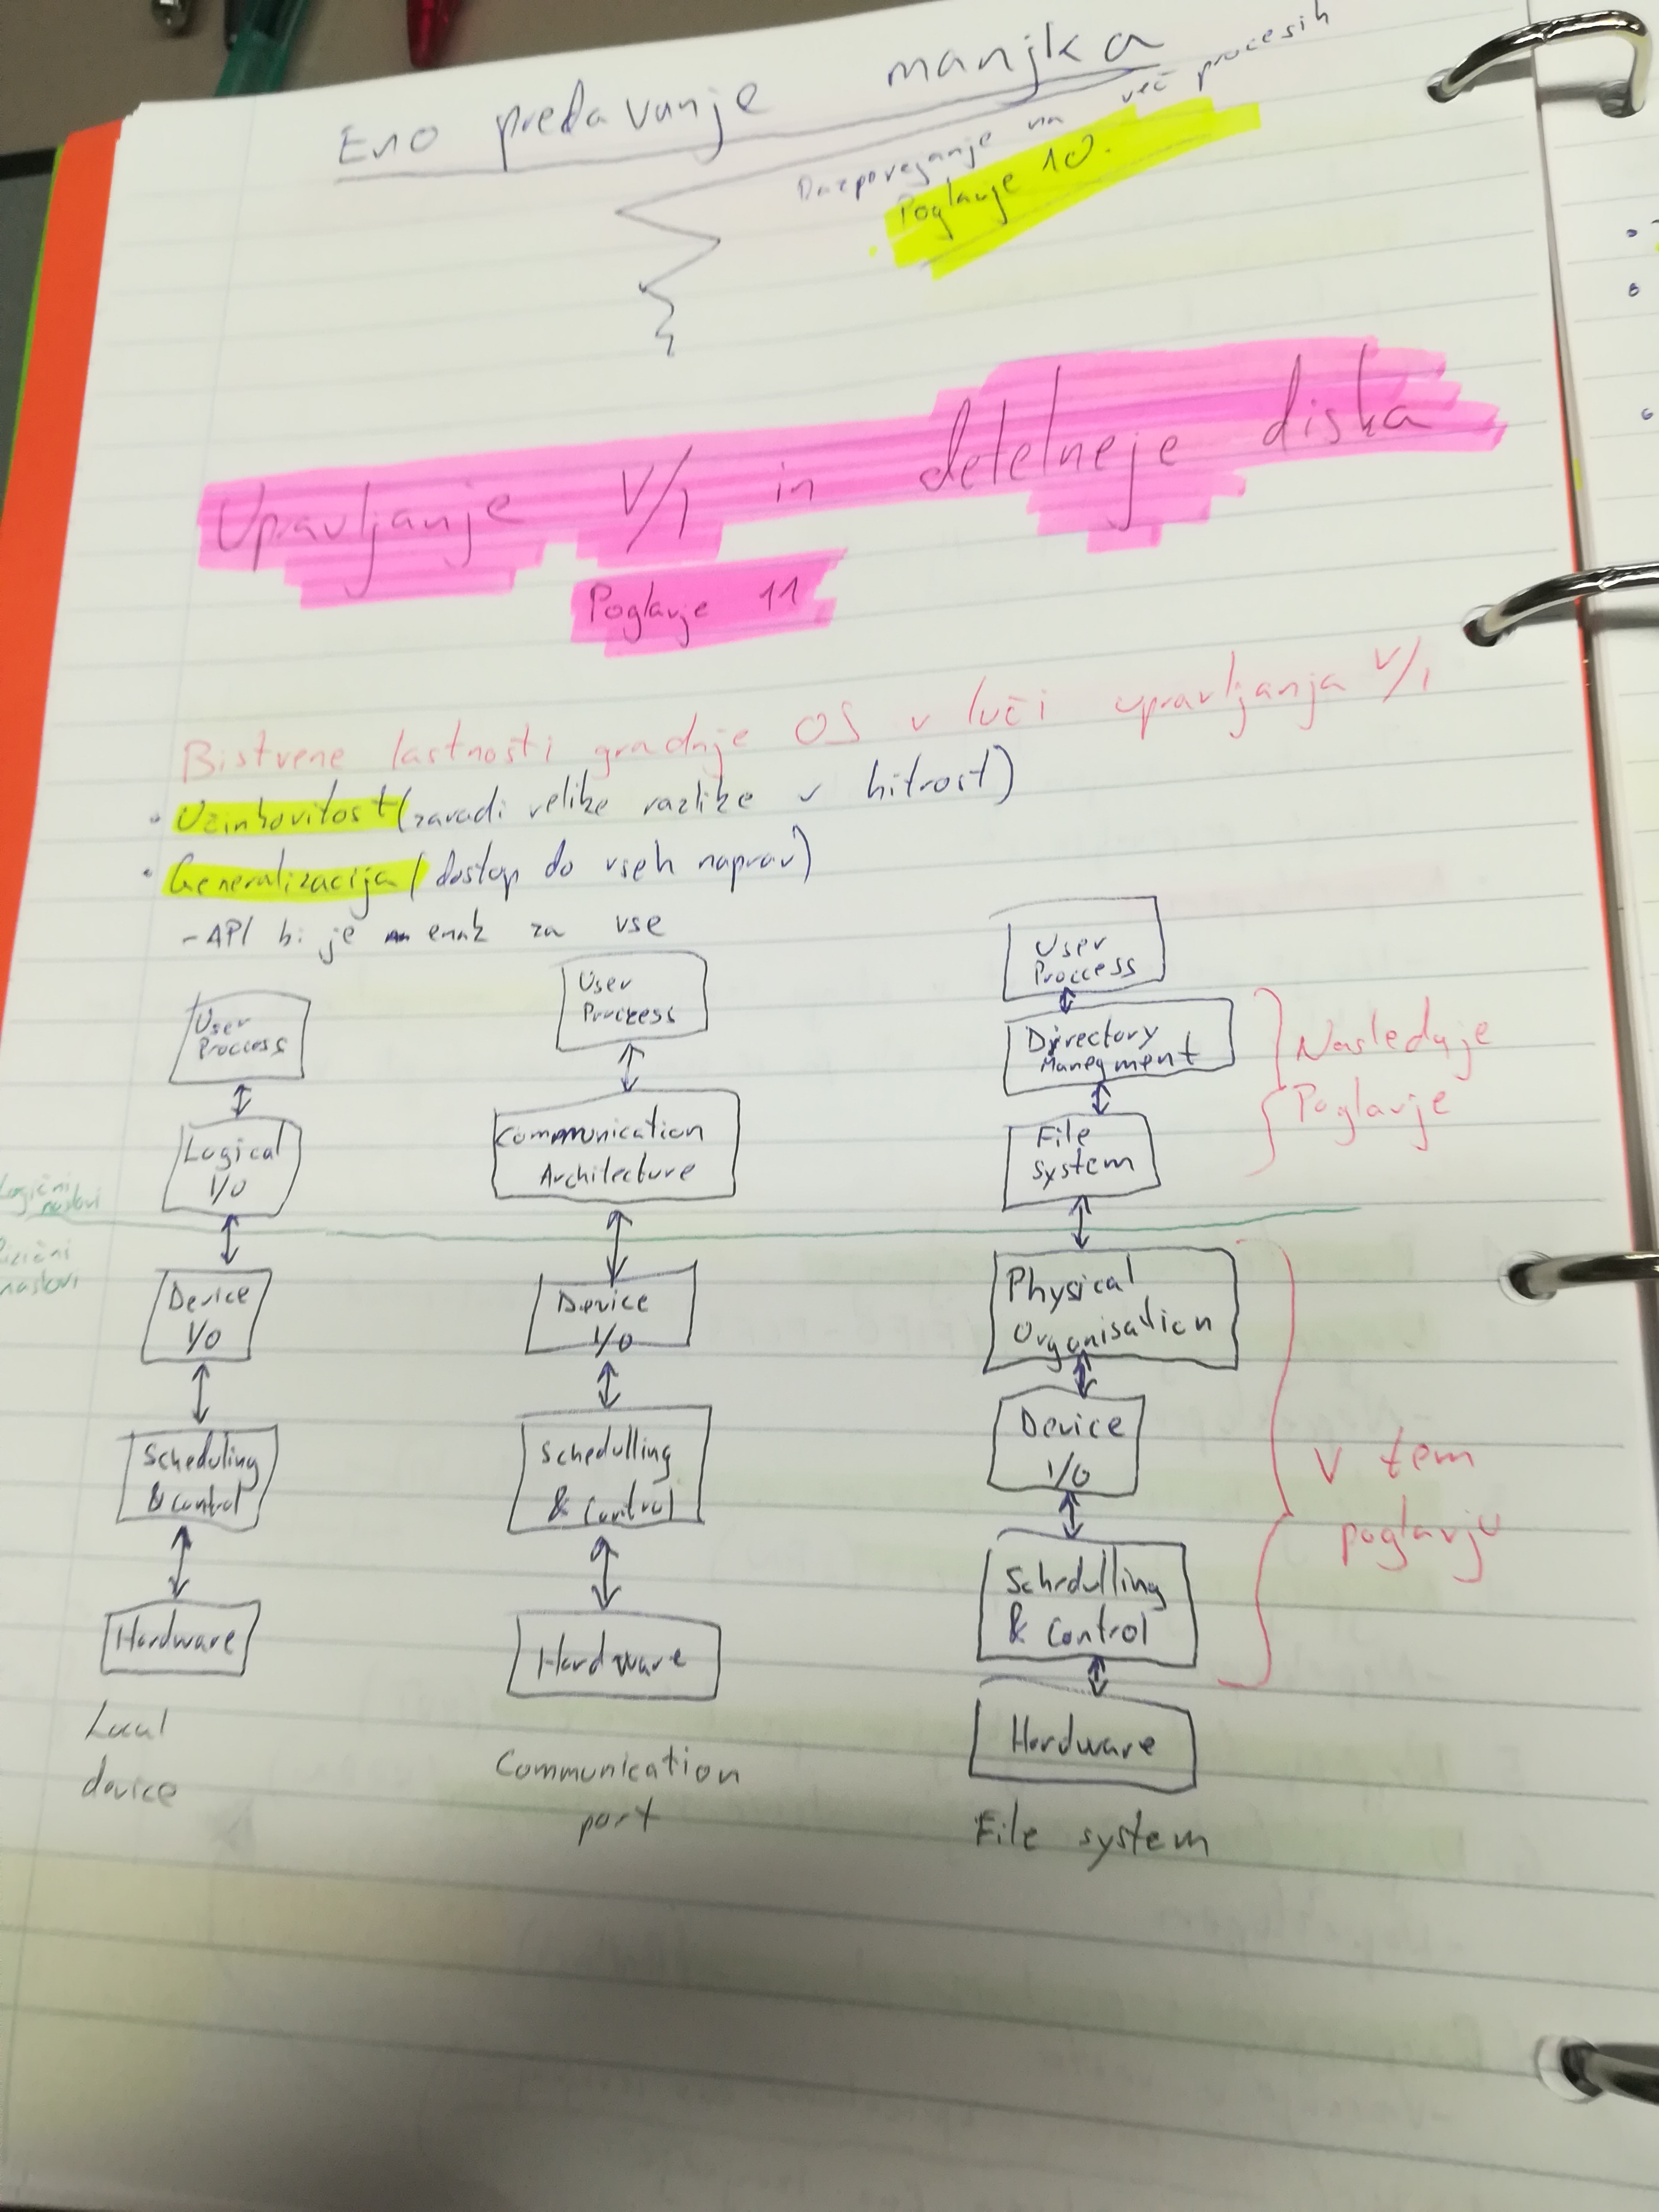 Eno predavanje manjka
Razporejanje na več procesih
Poglavje 10.
Upravljanje V/I in detelneje diska
Poglavje 11
Bistvene lastnosti gradnje OS v luči upravljanja V/I
• Učinkovitost (zaradi velike razlike v hitrost)
• Generalizacija (dostop do vseh naprav)
- API bi je enak za vse
User
Proccess
Logical
I/O
Device
I/O
Scheduling
& Control
Hardware
Local
device
User
Proccess
Communication
Architecture
Device
I/O
Schedulling
& Control
Hardware
Communication
port
User
Proccess
Directory
Manegment
File
system
Physical
Organisation
Device
I/O
Schedulling
& Control
Hardware
File system
Naslednje
Poglavje
V tem
poglavju
Logični
naslovi
Fizični
naslovi